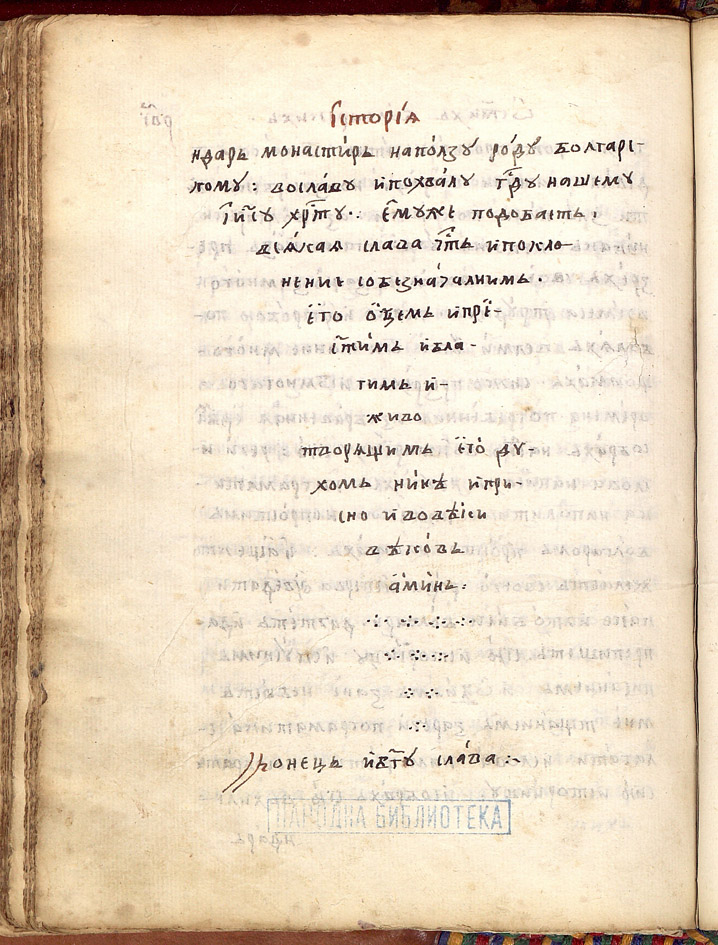 Їсторїѧ
ндарь монастирь наползу роду болгарс-
кому: вославу ипохвалу гд҇у нашему
їис҃у хрс҇ту: емуже подобаетъ.
всякая слава чс҇ть ипокло-
ненне собезначалнимь.
его оцемь ипре-
ст҃имь ибла-
гимь и-
живо
творящимь его ду-
хомь нинѣ ипри-
сно ивовѣки
вѣковь
аминь:
Конець ибг҃у слава:~
НАРОДНА БИБЛИОТЕКА